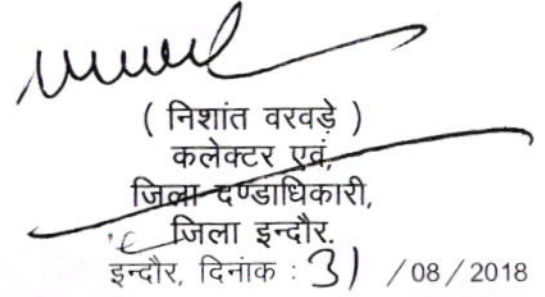 ( निशांत वरवड़े )
कलेक्टर एवं,
जिला दण्डाधिकारी,
जिला इन्दौर.
इन्दौर, दिनांक : 31 /08/2018